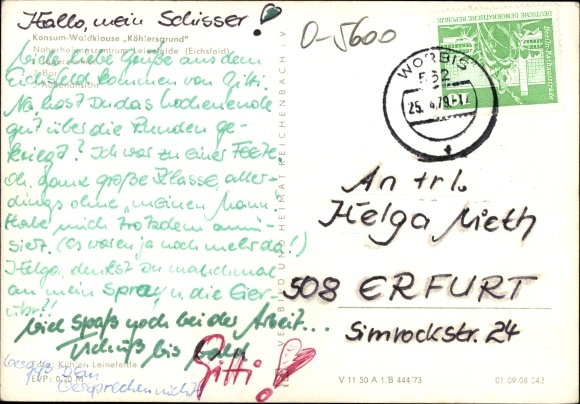 Hallo, mein Schisser!
Konsum-Waldklause „Köhlersgrund"
Naherholungszentrum Leinefelde (Eichsfeld)
Bar
Außenansicht
Viele liebe Grüße aus dem
Eichsfeld kommen von Gitti.
Na, hast Du das Wochenende
gut über die Runden ge-
kriegt? Ich war zu einer Feete.
Oh, ganz große Klasse, aller-
dings ohne „meinen Mann.
Habe mich trotzdem amü-
siert. (Es waren ja noch mehr da!)
Helga, denkst Du manchmal
an mein Spray u. die Eier-
uhr?!
Viel Spaß noch bei der Arbeit...
Tschüß bis bald
Gitti!
Kühlen Leinefelde
EVP: 0,20 M
Besprechen nicht
VERLAG BILD UND HEIMAT REICHENBACH I. V.
O-5600
WORBIS
562
25.4.79-17
DEUTSCHE DEMOKRATISCHE REPUBLIK
Berlin, Rathausstraße
10
An Frl.
Helga Mieth
508 ERFURT
Simrockstr. 24
V 11 50 A 1/B 444/73
01 09 08 042